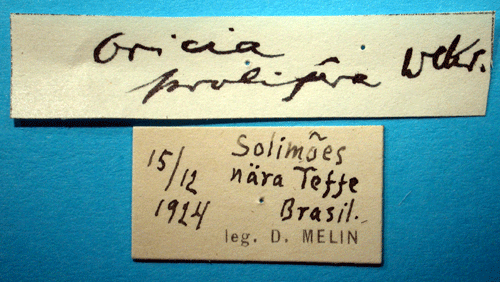 Oricia
prolifera Wlkr.
15/12
1924
Solimões
nära Teffe
Brasil.
leg. D. MELIN